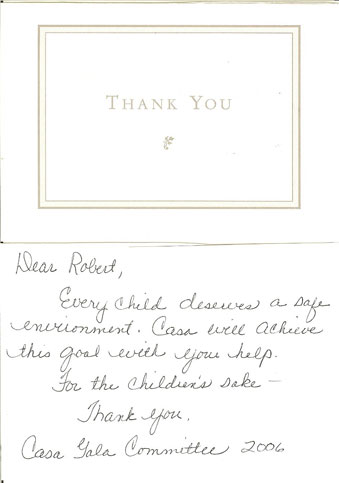 THANK YOU
Dear Robert,
Every child deserves a safe
environment. Casa will achieve
this goal with your help.
For the children's sake –
Thank you.
Casa Gala Committee 2006